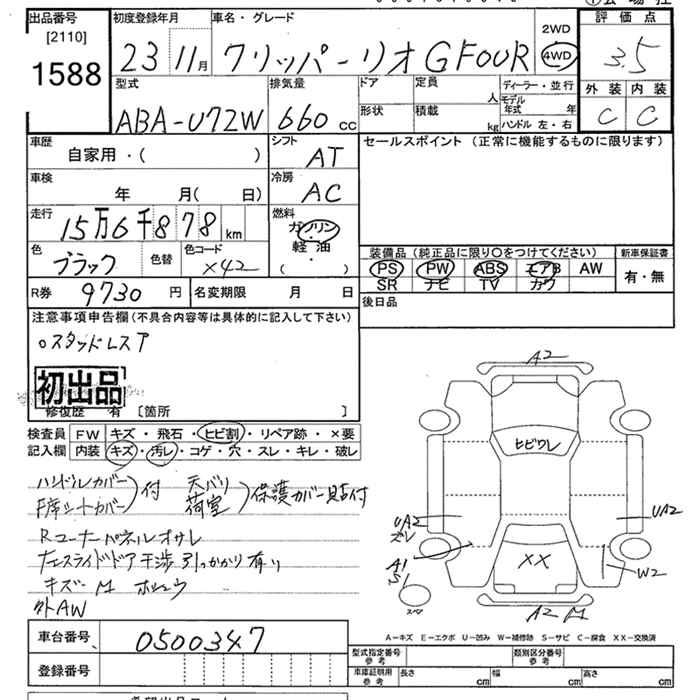 出品番号 初度登録年月 車名・グレード 評価点
[2110] 2WD
1588 23 11月 クリッパーリオ G FOUR 4WD 3.5
型式 排気量 ドア 定員 人 ディーラー・並行 外装 内装
ABA-U72W 660cc 形状 積載 kg モデル年式 年 C C
ハンドル 左・右
車歴 シフト セールスポイント (正常に機能するものに限ります)
自家用・( ) AT
車検 冷房
年 月( 日) AC
走行 燃料
15万6千878km ガソリン・
色 色替 色コード 軽油・
ブラック X42 ( )
装備品 (純正品に限り○をつけてください) 新車保証書
PS PW ABS エアB AW 有・無
SR ナビ TV カワ
R券 9730円 名変期限 月 日 後日品
注意事項申告欄(不具合内容等は具体的に記入して下さい)
○スタッドレスア
初出品
修復歴 有 [箇所 ]
検査員 FW キズ・飛石・ヒビ割・リペア跡・×要
記入欄 内装 キズ・汚レ・コゲ・穴・スレ・キレ・破レ
ハンドルカバー 天バリ
F席シートカバー )付 荷室 )保護カバー貼付
Rコーナーパネルオサレ
左スライドドア干渉 引っかかり有り
キズー M ホシュウ
外AW
A2
ヒビワレ
UA2
ズレ
UA2
A1
S1
XX
W2
スペ
A2 M
A-キズ E-エクボ U-凹み W-補修跡 S-サビ C-腐食 XX-交換済
車台番号 0500347
登録番号
型式指定番号 参考 類別区分番号 参考
車庫証明用 参考 長さ cm 幅 cm 高さ cm